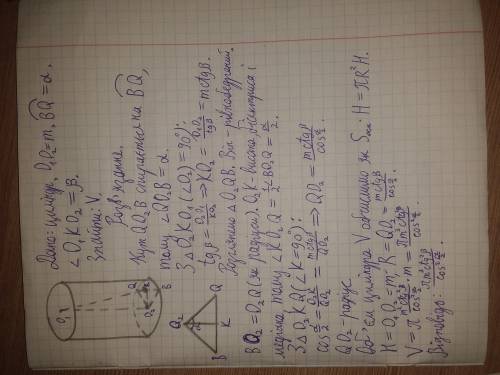 Дано: циліндр, O₁O₂=m, ◡BQ=α,
∠O₁KO₂=β.
Знайти: V.
Розв'язання.
Кут QO₂B спирається на ◡BQ,
тому ∠QO₂B=α.
З △O₂KO₁ (∠O₂=90°):
tgβ = O₂O₁/KO₂ ⇒ KO₂ = O₁O₂/tgβ = mctgβ.
Розглянемо △O₂QB. Він - рівнобедрений.
BO₂=O₂Q (як радіуси). O₂K-висота, бісектриса і
медіана, тому ∠KO₂Q=½∠BO₂Q=α/2.
З △O₂KQ (∠K=90°):
cos α/2 = O₂K/QO₂ = mctgβ/QO₂ ⇒ QO₂ = mctgβ/cos α/2
QO₂-радіус
Об'єм циліндра V обчислимо за Sосн · H = πR²H.
H=O₁O₂=m, R=QO₂= mctgβ/cos α/2
V=π m²ctg²β/cos² α/2 · m = πm³ctg²β/cos² α/2
Відповідь: πm³ctg²β/cos² α/2.
O₁
O₂
K
Q
B
O₂
B
K
Q